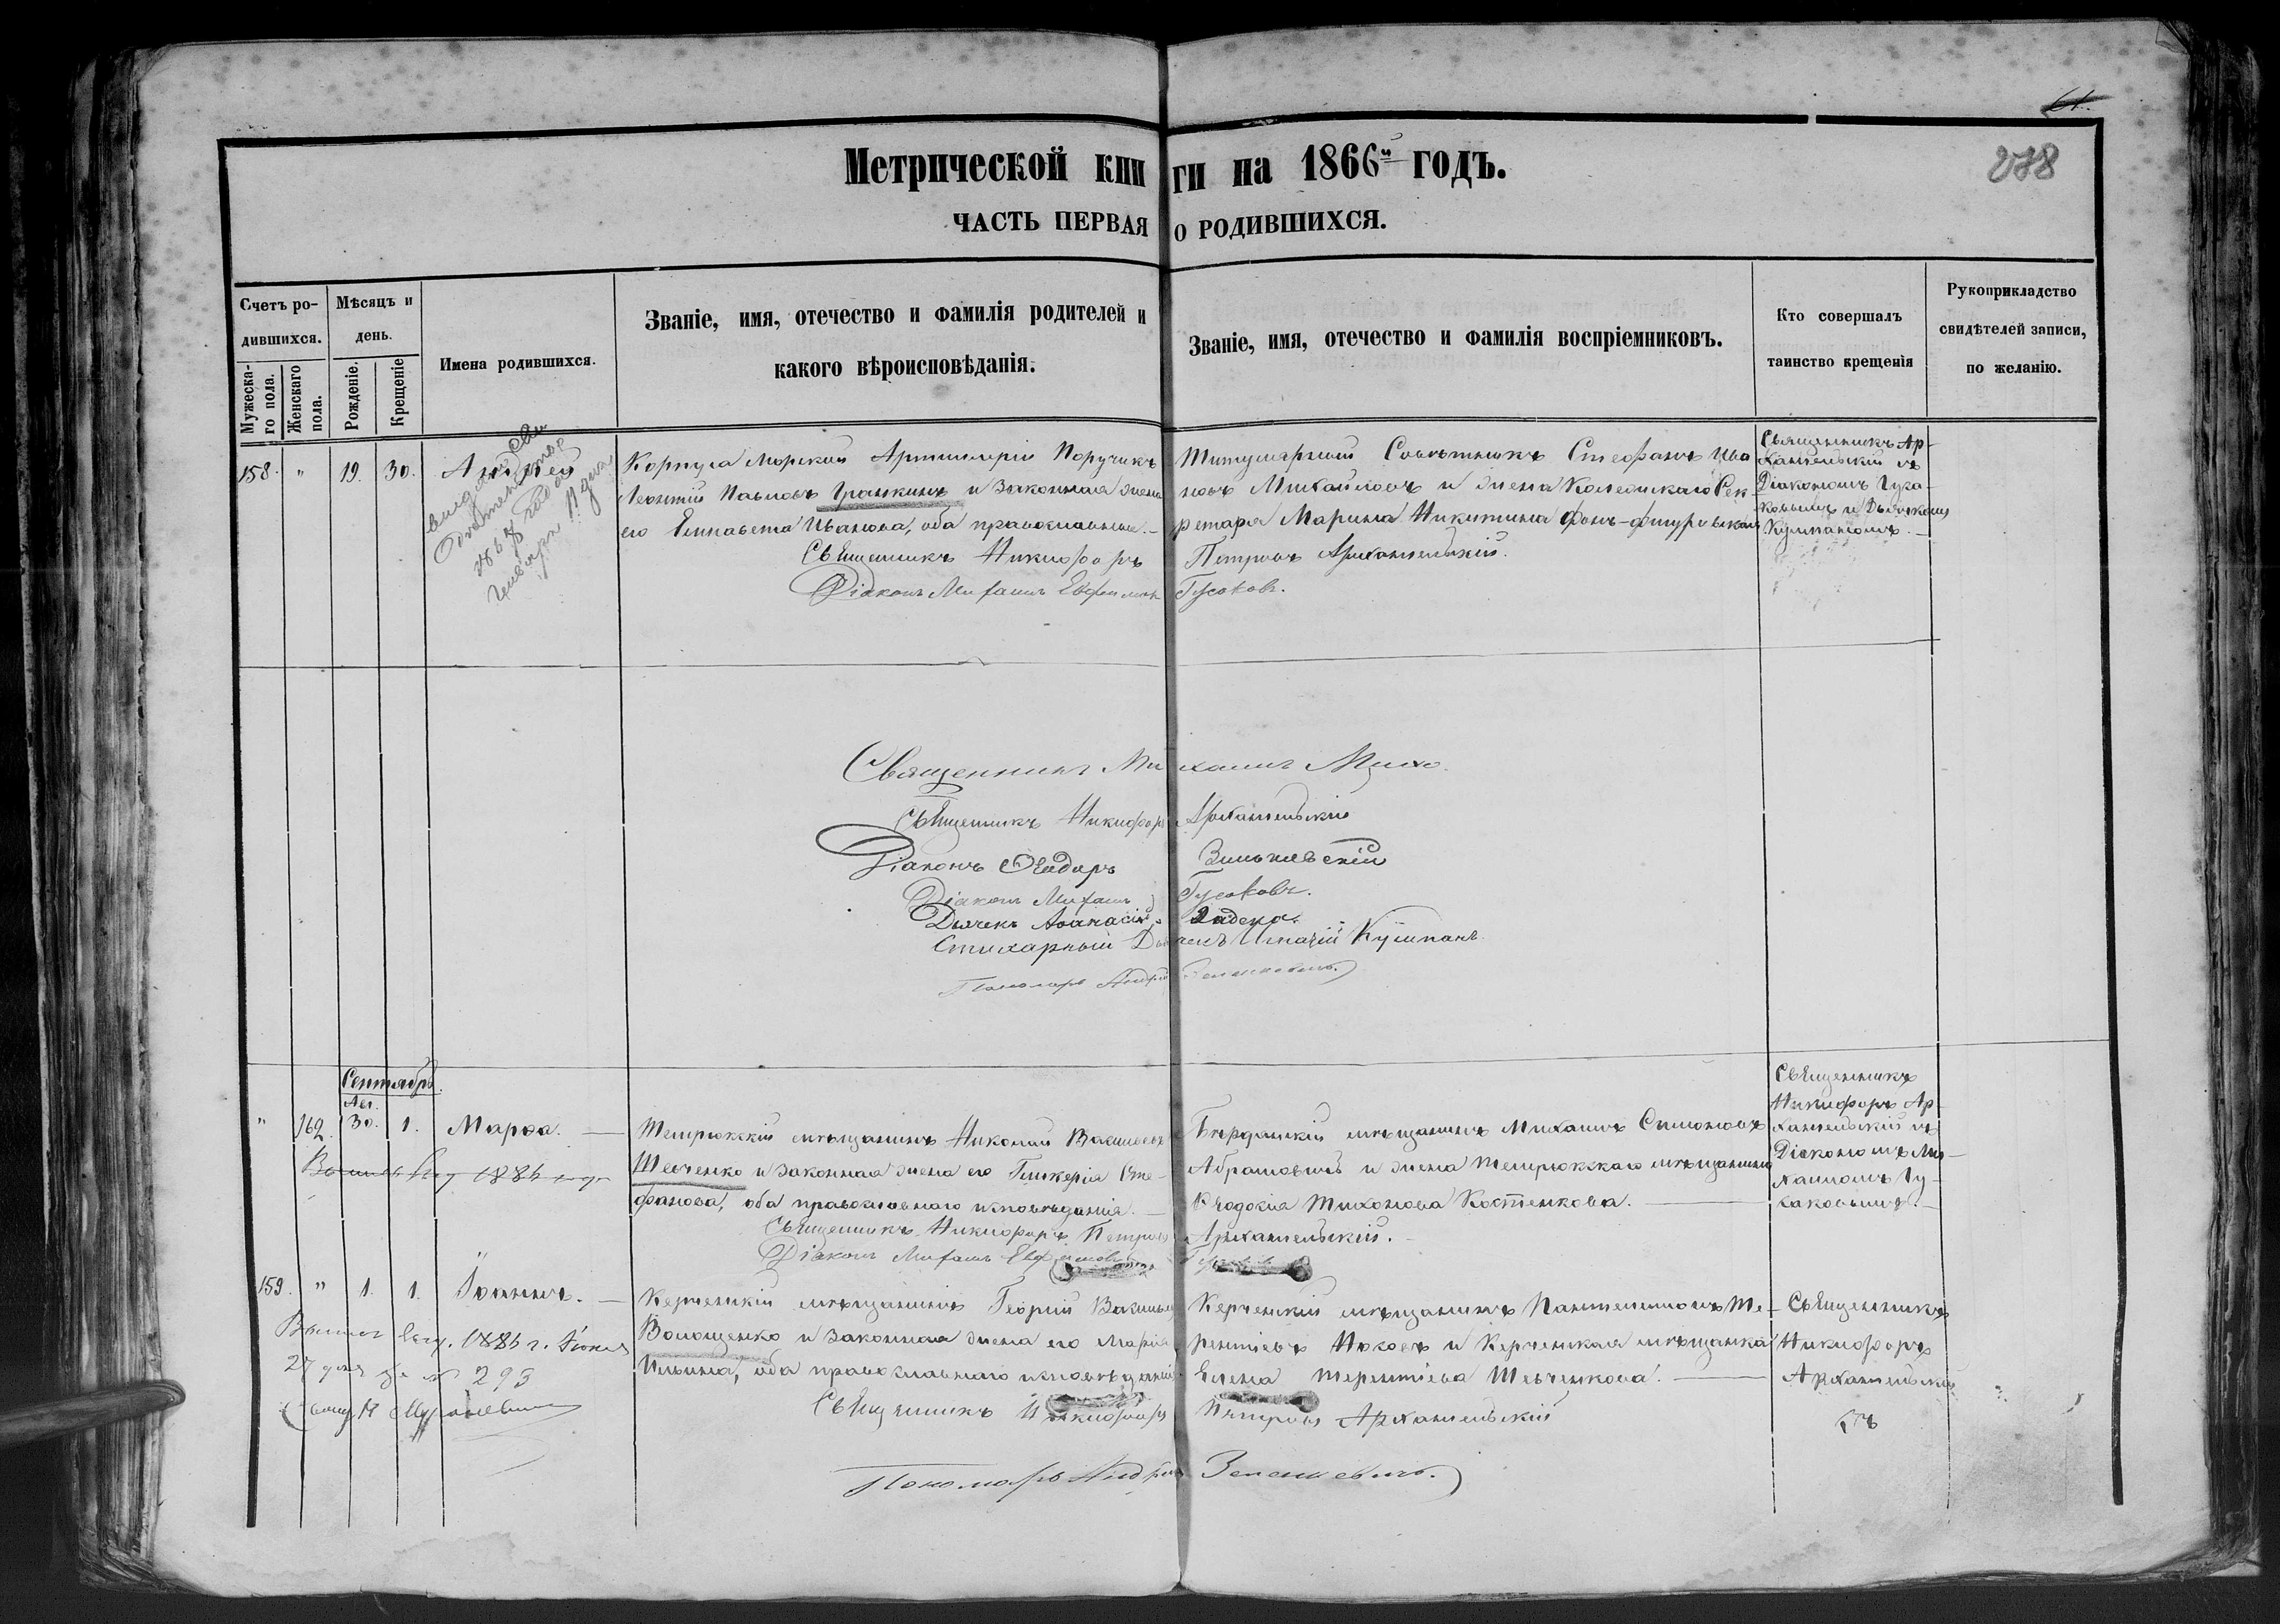 61.
278
Метрической книги на 1866й годъ.
ЧАСТЬ ПЕРВАЯ О РОДИВШИХСЯ.
Счетъ родившихся.
Мужескаго пола.
Женскаго пола.
Мѣсяцъ и день.
Рожденіе.
Крещеніе
Имена родившихся.
Званіе, имя, отечество и фамилія родителей и
какого вѣроисповѣданія.
Званіе, имя, отечество и фамилія воспріемниковъ.
Кто совершалъ
таинство крещенія
Рукоприкладство
свидѣтелей записи,
по желанію.
158. " 19. 30. Андрей
1867 года
Генваря 11 дня
Корпуса Морской Артиллеріи Поручикъ
Леонтій Павловъ Гранкинъ и законная жена
его Елисавета Иванова, оба православные.
Титулярный Совѣтникъ Стефанъ Ива
новъ Михайловъ и жена Коллежскаго Сек-
ретаря Марина Никитина фонъ-
Священникъ Ар-
хангельскій съ
Діакономъ Гуса-
ковымъ и Дьячкомъ
Кулпаномъ.
Священникъ Никифоръ Петровъ Архангельскій.
Діаконъ Михаилъ Евфимовъ Гусаковъ.
Священникъ Михаилъ
Священникъ Никифоръ Архангельскій
Діаконъ Ѳеодоръ Зиньковскій
Діаконъ Михаилъ Гусаковъ.
Дьячекъ Аѳанасій Задера.
Стихарный Дьячекъ Игнатій Кулпанъ.
Пономарь Андрей Зеленкевичъ.
Сентябрь.
Авг.
" 162. 30. 1. Марѳа.
1886 года
Темрюкскій мѣщанинъ Николай Васильевъ
Шевченко и законная жена его Гликерія Сте-
фанова, оба православнаго исповѣданія.
Бердянскій мѣщанинъ Михаилъ Симоновъ
Абрамовичъ и жена Темрюкскаго мѣщанина
Евдокія Тихонова Костенкова.
Священникъ
Никифоръ Ар-
хангельскій съ
Діакономъ Ми-
хаиломъ Гу-
саковымъ.
Священникъ Никифоръ Петровъ Архангельскій.
Діаконъ Михаилъ Евфимовъ
159. " 1. 1. Іоаннъ.
1886 г. Іюня
27 дня за № 293
Керченскій мѣщанинъ Георгій Васильевъ
Волощенко и законная жена его Марія
Ильина, оба православнаго исповѣданія.
Керченскій мѣщанинъ Пантелеимонъ Те-
рентіевъ Нюховъ и Керченская мѣщанка
Елена Терентіева Шевченкова.
Священникъ
Никифоръ
Архангельскій
съ
Священникъ Никифоръ Петровъ Архангельскій
Пономарь Андрей Зеленкевичъ.